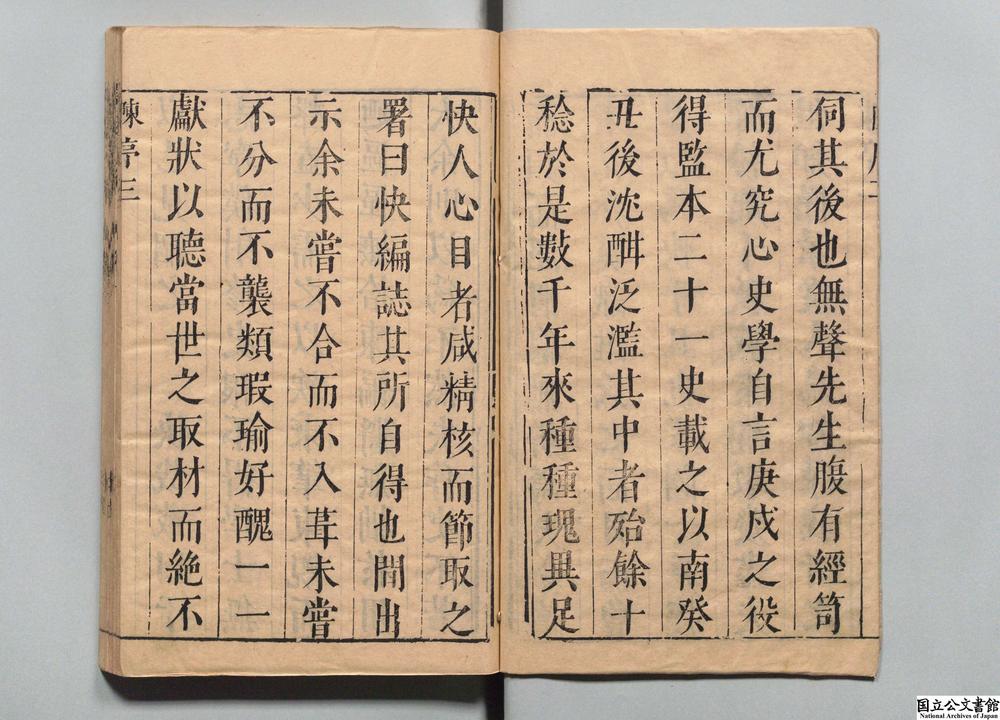 伺其後也無聲先生腹有經笥
而尤究心史學自言庚戍之役
得監本二十一史載之以南癸
丑後沈酣泛濫其中者殆餘十
稔於是數千年來種種瑰異足
快人心目者咸精核而節取之
署曰快編誌其所自得也間出
示余未嘗不合而不入葺未嘗
不分而不襲類瑕瑜好醜一一
獻狀以聽當世之取材而絶不
陳序三
国立公文書館
National Archives of Japan